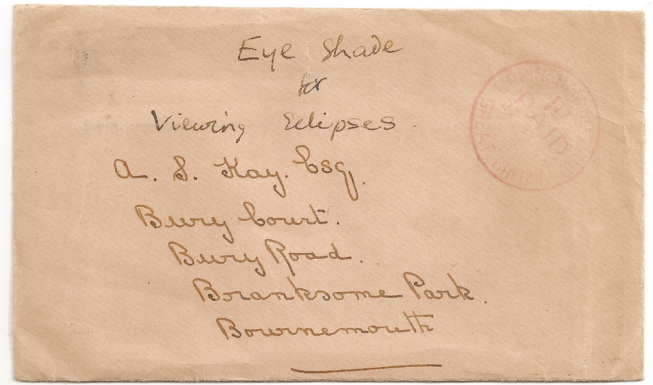 Eye Shade
for
Viewing Eclipses.
A. S. Kay. Esq.
Bury Court.
Bury Road.
Boranksome Park.
Bournemouth
1D
PAID
GREAT BRITAIN